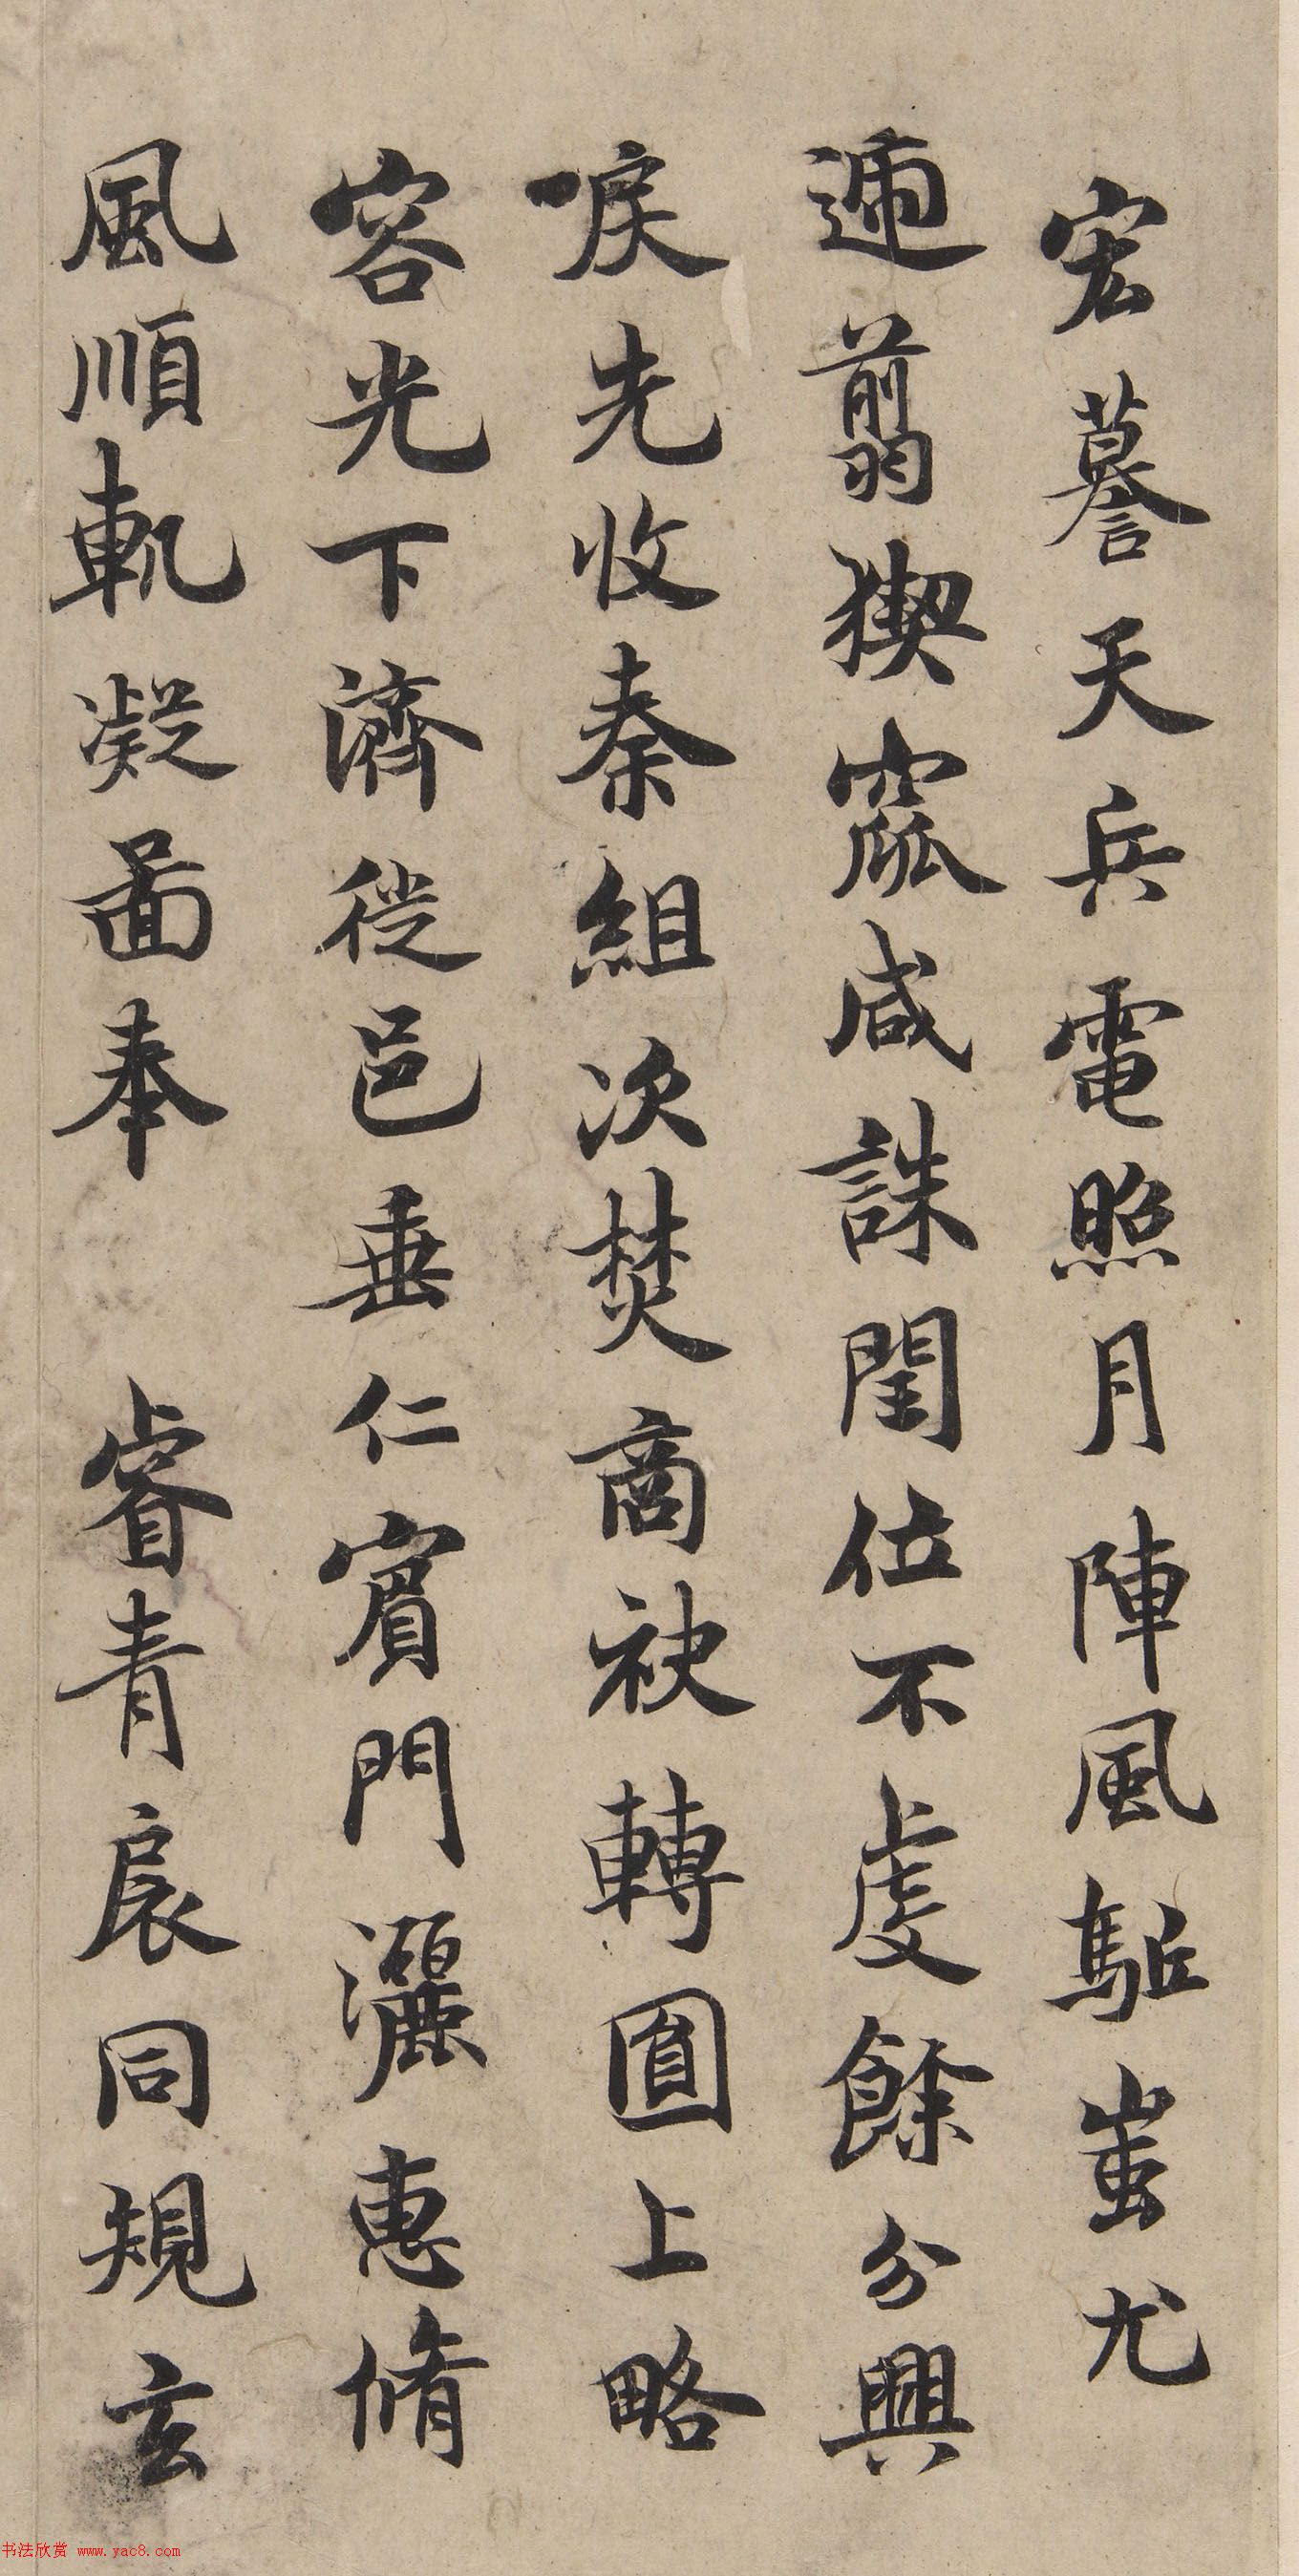 宏謩天兵電照月陣風駈蚩尤
遞翦猰窳咸誅閏位不虔餘分興
唳先收秦組次焚商袂轉圓上略
容光下濟徙邑垂仁賓門灑惠脩
風順軌凝啚奉 睿青扆同規玄
书法欣赏 www.yac8.com